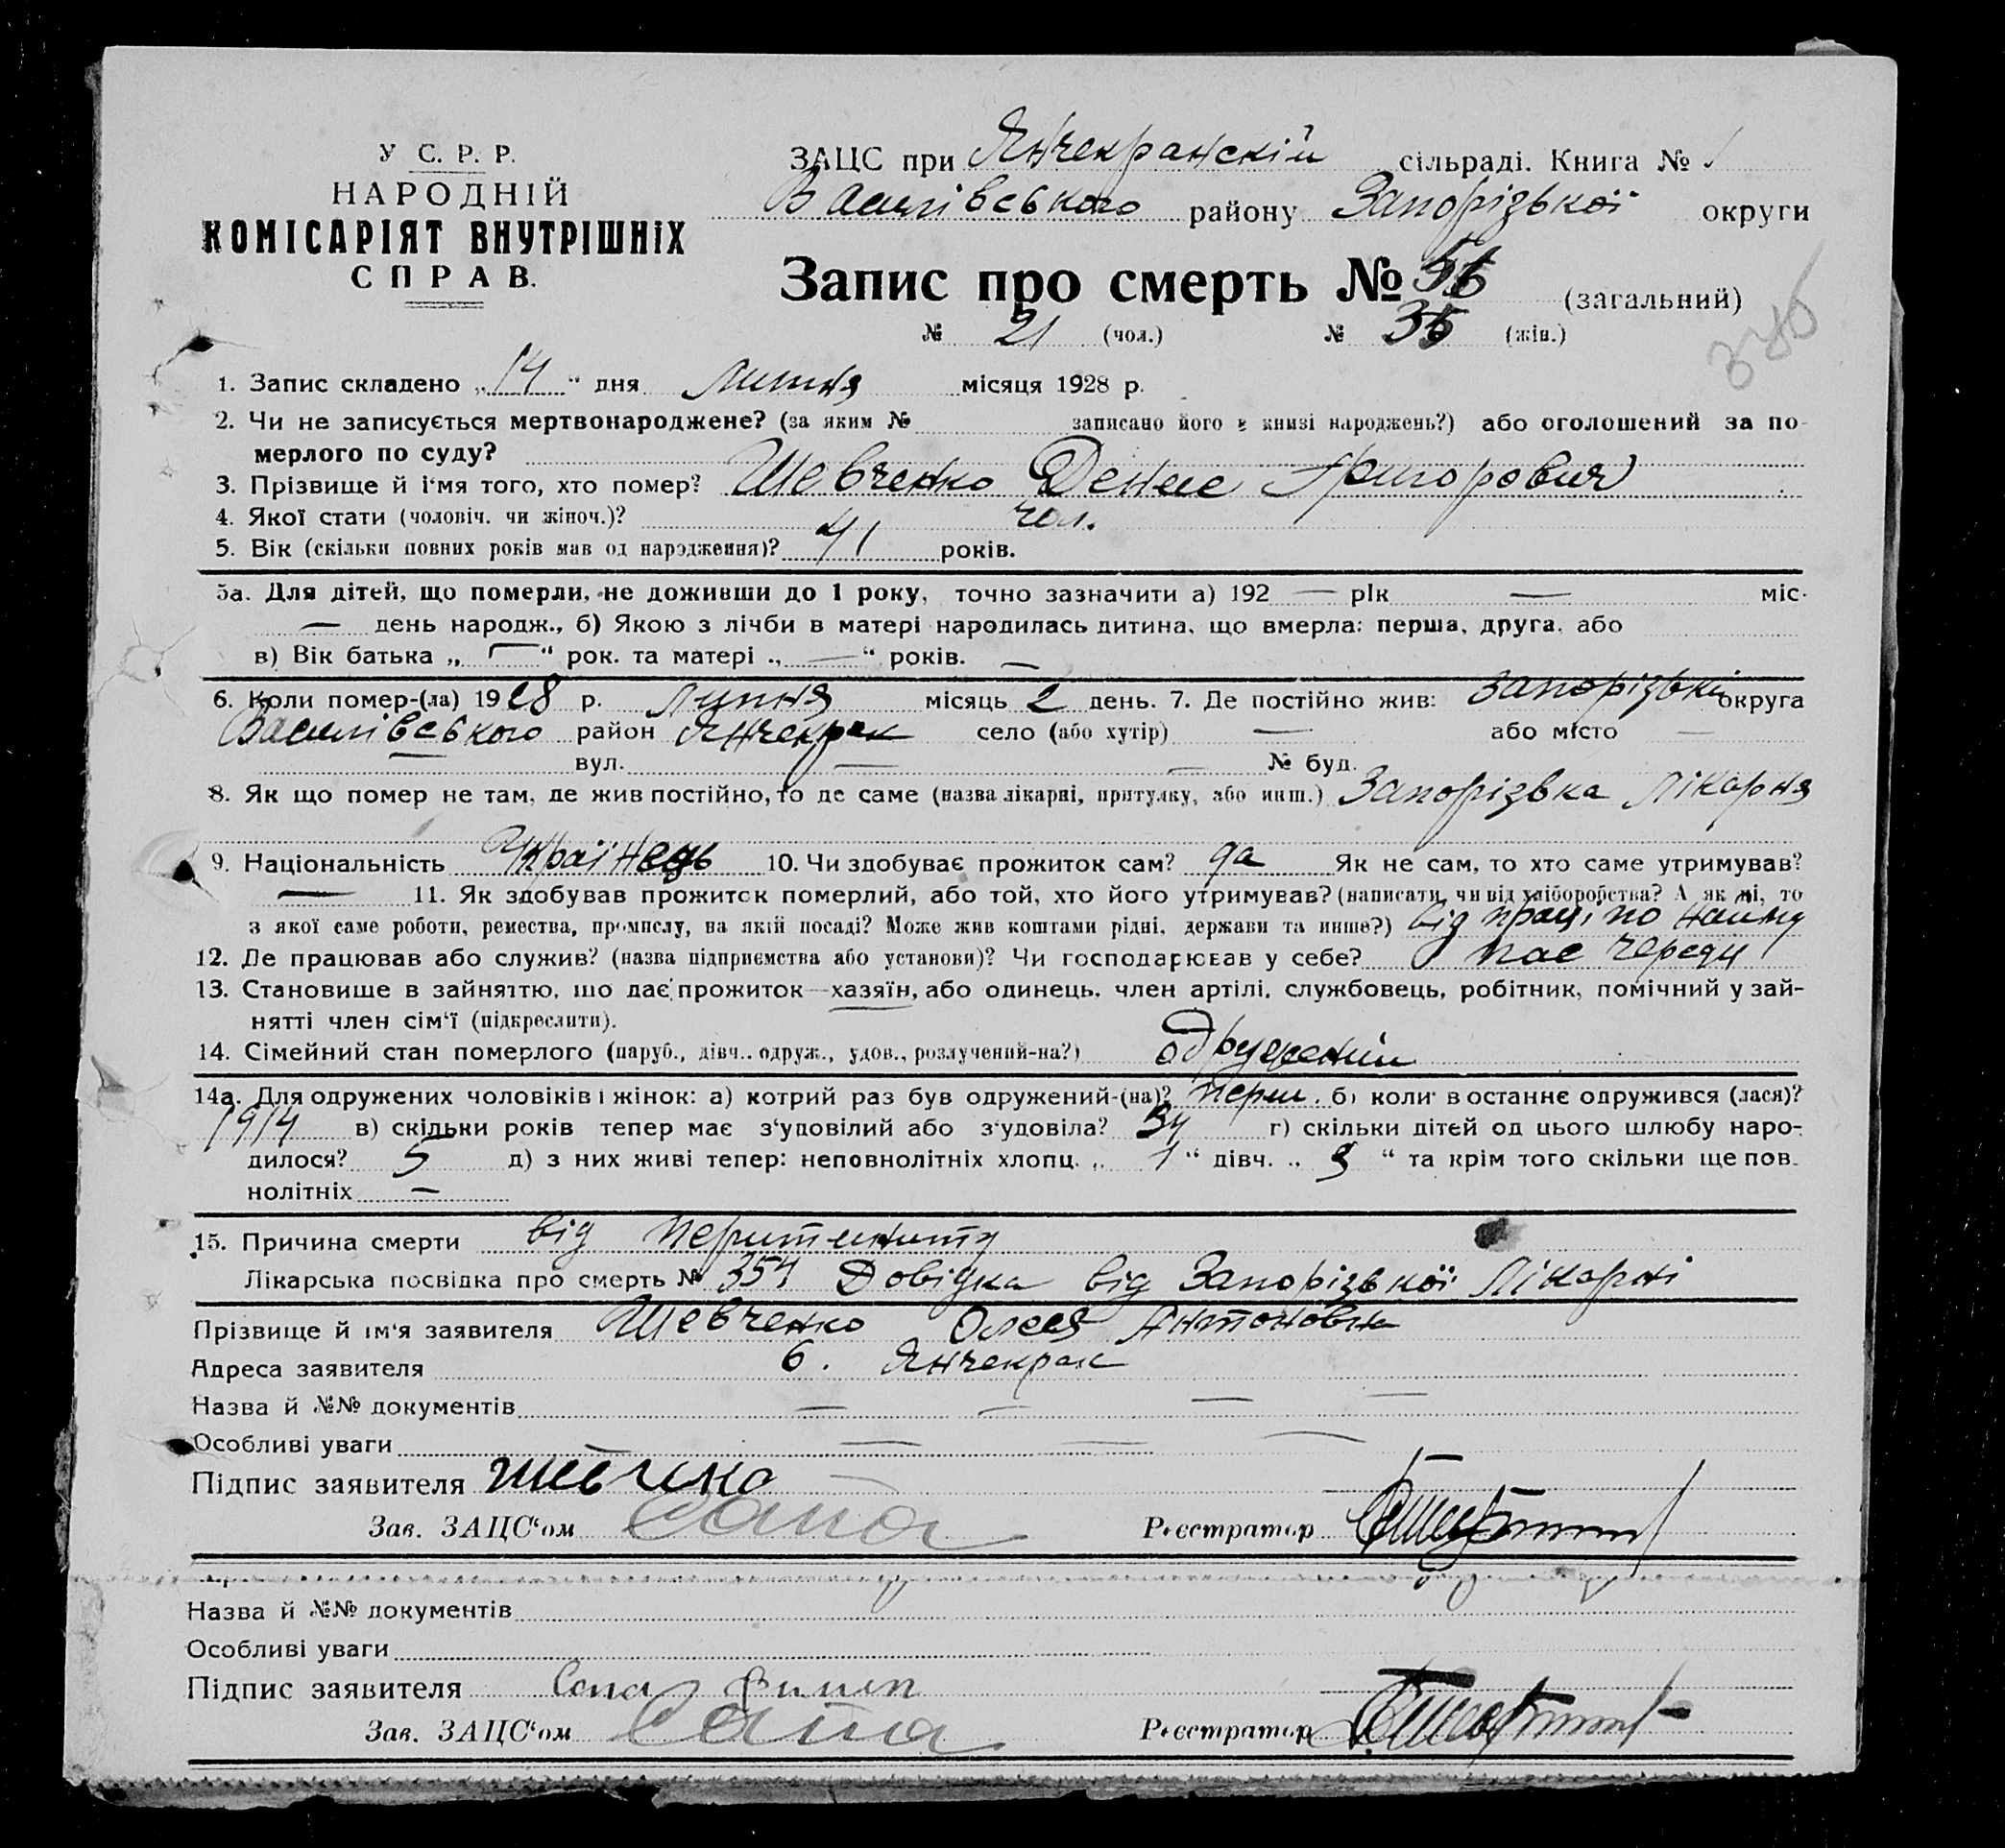 У С. Р. Р.
НАРОДНІЙ
КОМІСАРІЯТ ВНУТРІШНІХ
СПРАВ.
ЗАЦС при Янчекранскій сільраді. Книга №
Василівського району Запорізької округи
Запис про смерть № 56 (загальний)
№ 21 (чол.) № 35 (жін.)
1. Запис складено „14“ дня липня місяця 1928 р.
2. Чи не записується мертвонароджене? (за яким № записано його в книзі народжень?) або оголошений за по-
мерлого по суду?
3. Прізвище й і'мя того, хто помер? Шевченко Денис Григорович
4. Якої стати (чоловіч. чи жіноч.)? чол.
5. Вік (скільки повних років мав од народження)? 41 років.
5а. Для дітей, що померли, не доживши до 1 року, точно зазначити а) 192 — рік — міс.
— день народж., б) Якою з лічби в матері народилась дитина, що вмерла: перша, друга, або
в) Вік батька „ — “ рок. та матері „ — “ років. —
6. Коли помер-(ла) 1928 р. липня місяць 2 день. 7. Де постійно жив: Запорізький округа
Василівського район Янчекрак село (або хутір) — або місто —
— вул. — — № буд.
8. Як що помер не там, де жив постійно, то де саме (назва лікарні, притулку, або инш.) Запорізька лікарня
9. Національність Українець 10. Чи здобуває прожиток сам? да Як не сам, то хто саме утримував?
— 11. Як здобував прожиток померлий, або той, хто його утримував? (написати, чи від хліборобства? А як ні, то
з якої саме роботи, ремества, промислу, на якій посаді? Може жив коштами рідні, держави та инше?) від праці по найму
12. Де працював або служив? (назва підприємства або установи)? Чи господарював у себе? пас череду
13. Становише в зайняттю, що дає прожиток—хазяїн, або одинець, член артілі, службовець, робітник, помічний у зай-
нятті член сім'ї (підкреслити).
14. Сімейний стан померлого (паруб., дівч., одруж., удов., розлучений-на?) одружений
14а. Для одружених чоловіків і жінок: а) котрий раз був одружений-(на)? перш. б) коли востаннє одружився (лася)?
1914 в) скільки років тепер має з'уповілий або з'удовіла? 34 г) скільки дітей од цього шлюбу наро-
дилося? 5 д) з них живі тепер: неповнолітніх хлопц. „ 1 “ дівч. „ “ та крім того скільки ще пов-
нолітніх —
15. Причина смерти від
Лікарська посвідка про смерть № 354 Довідка від Запорізької лікарні
Прізвище й ім'я заявителя Шевченко Олеся Антоновна
Адреса заявителя б. Янчекрак
Назва й №№ документів — — — —
Особливі уваги — — —
Підпис заявителя
Зав. ЗАЦС'ом Сапа Реєстратор
Назва й №№ документів
Особливі уваги
Підпис заявителя Сапа
Зав. ЗАЦС'ом Сапа Реєстратор